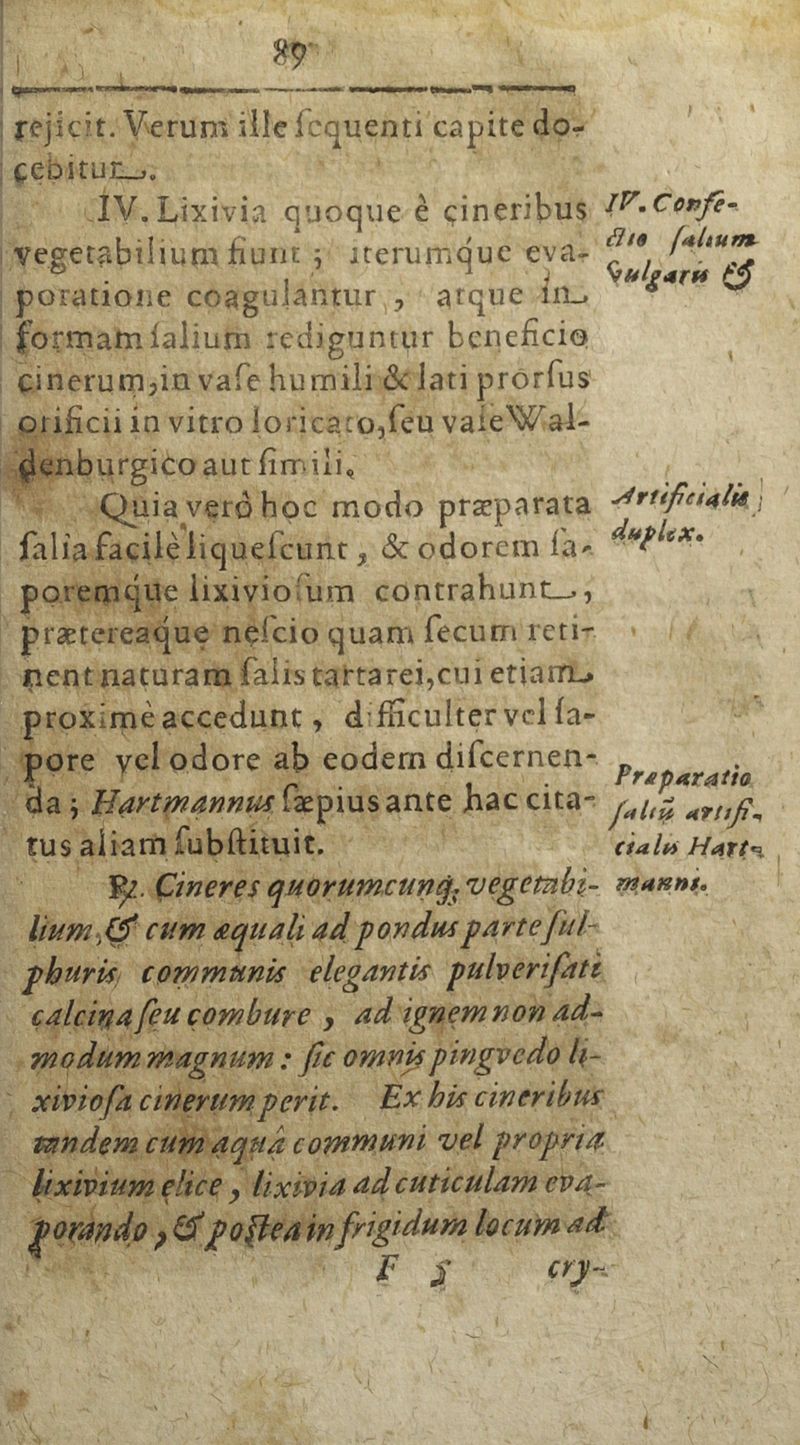 89
rejicit. Verum ille ſequenti capite do-
cebitur.
IV. Lixivia quoque è cineribus
vegetabilium fiunt; iterumque eva-
poratione coagulantur, atque in
formam ſalium rediguntur beneficio
cinerum, in vaſe humili & lati prorſus
orificii in vitro loricato, ſeu vaſe Wal-
denburgico aut ſimili.
Quia verò hoc modo præparata
ſalia facilè liqueſcunt, & odorem ſa-
poremque lixivioſum contrahunt,
prætereaque neſcio quam ſecum reti-
nent naturam ſalis tartarei, cui etiam
proximè accedunt, difficulter vel ſa-
pore vel odore ab eodem diſcernen-
da; Hartmannus ſæpius ante hac cita-
tus aliam ſubſtituit.
℞. Cineres quorumcunq; vegetabi-
lium, & cum æquali ad pondus parte ſul-
phuris communis elegantis pulveriſati
calcina ſeu combure, ad ignem non ad-
modum magnum: ſic omnis pingvedo li-
xivioſa cinerum perit. Ex his cineribus
tandem cum aquâ communi vel propria
lixivium elice, lixivia ad cuticulam eva-
porando, & poſtea in frigidum locum ad
F 5 cry-
IV. Confe-
ctio ſalium
vulgaris &
Artificialis
duplex.
Præparatio
ſaliũ artifi-
cialis Hart-
manni.